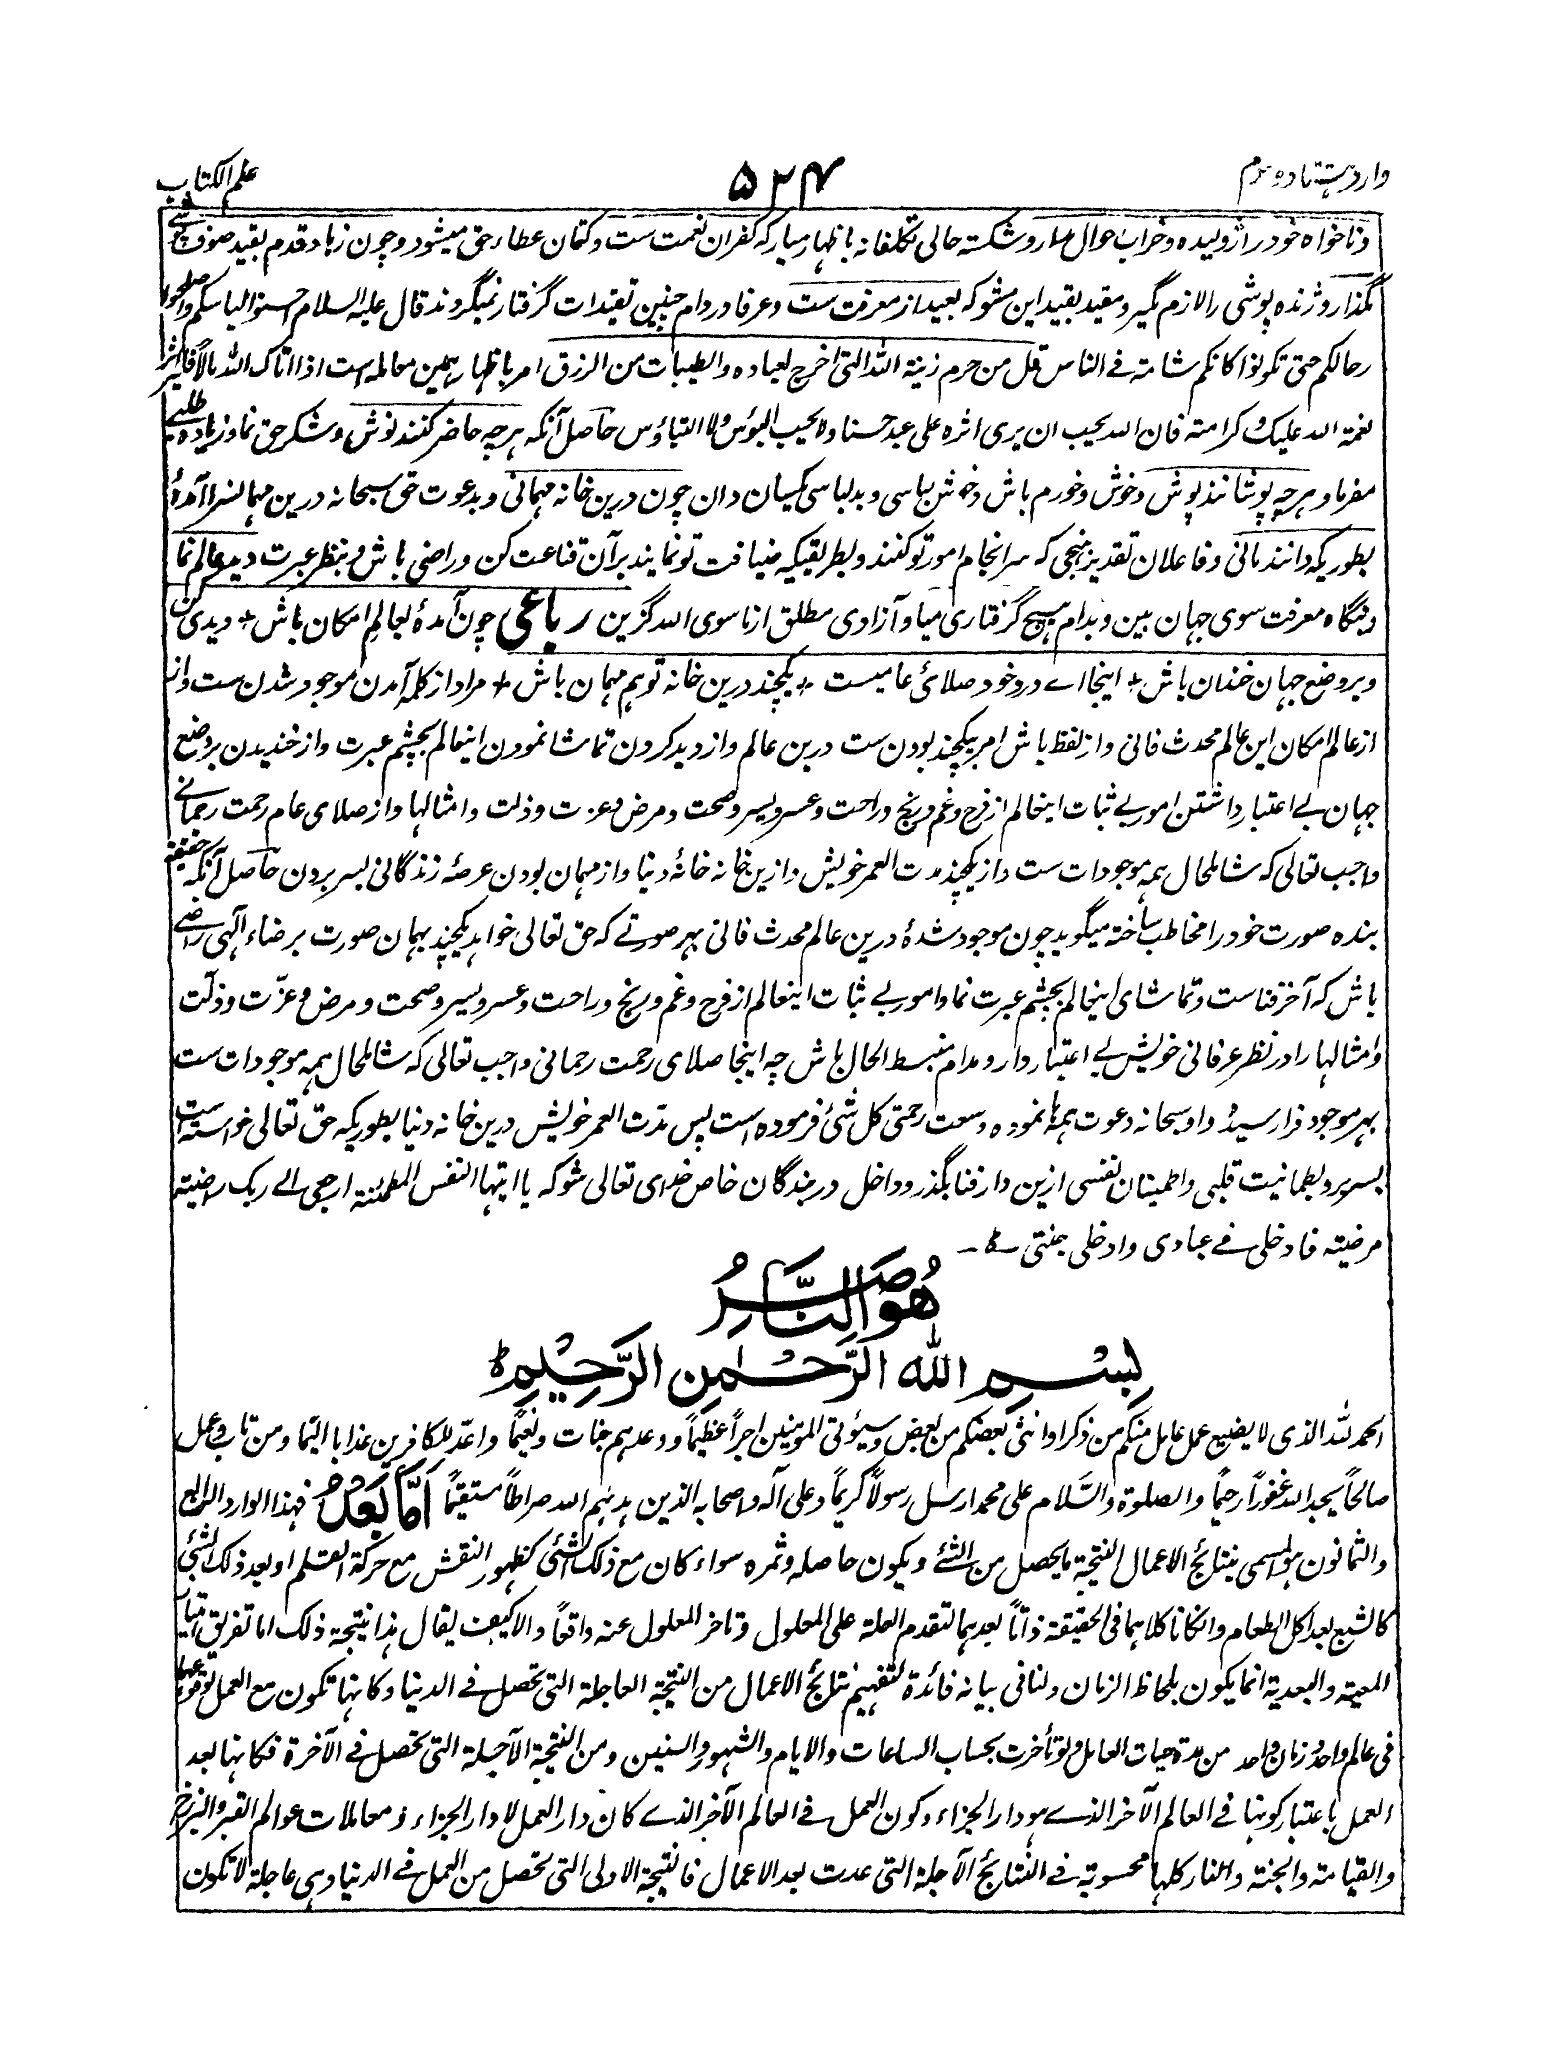 وارد هشتاد و سوم
۵۲۴
علم الکتاب
و ناخواه خود را ژولیده و خراب احوال مدار و شکسته حالی تکلفانه باظهار میار که کفران نعمت ست و کتمان عطاء حق میشود و چون زهاد قدم بقید صوف پوشی
مگذار و ژنده پوشی را لازم مگیر و مقید بقید این مشو که بعید از معرفت ست و عرفا در دام چنین تقیدات گرفتار نمیگردند قال علیه السلام احسنوا لباسکم و اصلحوا
رحالکم حتی تکونوا کانکم شامة فی الناس قل من حرم زینة الله التی اخرج لعباده والطیبات من الرزق امر باظهار همین معامله است اذا اتاک الله مالا فلیر اثر
نعمة الله علیک و کرامته فان الله یحب ان یری اثره علی عبده حسنا ولا یحب البؤس ولا التباؤس حاصل آنکه هر چه حاضر کنند نوش و شکر حق نما و زیاده طلبی
مفرما و هر چه پوشانند پوش و خوش و خورم باش و خوش لباسی و بدلباسی یکسان دان چون درین خانه مهمانی و بدعوت حق سبحانه درین مهمانسرا آمدۀ
بطوریکه دانند مانی و فاعلان تقدیر بنهجی که سرانجام امور تو کنند و بطریقیکه ضیافت تو نمایند بر آن قناعت کن و راضی باش و بنظر عبرت دید عالم نما
و نگاه معرفت سوی جهان بین و بدام هیچ گرفتاری میا و آزادی مطلق از ماسوی الله گزین رباعی چون آمدۀ بعالم امکان باش + دیدی کن
و بر وضع جهان خندان باش + اینجا اے درد خود صلائ عامیست + یکچند درین خانه تو هم مهمان باش + مراد از کلمه آمدن موجود شدن ست و از
از عالم امکان این عالم محدث فانی و از لفظ باش امر بیکچند بودن ست درین عالم و از دید کردن تماشا نمودن اینعالم بچشم عبرت و از خندیدن بر وضع
جهان بے اعتبار داشتن امور بے ثبات اینعالم از فرح و غم و رنج و راحت و عسر و یسر و صحت و مرض و عزت و ذلت و امثالها و از صلای عام رحمت رحمانے
واجب تعالی که شامل حال همه موجودات ست و از یکچند مدت العمر خویش و از ین خانه خانۀ دنیا و از مهمان بودن عرصۀ زندگانی بسر بردن حاصل آنکه حقیقت
بنده صورت خود را مخاطب ساخته میگوید چون موجود شدۀ درین عالم محدث فانی بهر صورتے که حق تعالی خواهد یکچند بهمان صورت برضاء آلهی راضے
باش که آخر فناست و تماشای اینعالم بچشم عبرت نما و امور بے ثبات اینعالم از فرح و غم و رنج و راحت و عسر و یسر و صحت و مرض و عزّت و ذلّت
و امثالها را در نظر عرفانی خویش بے اعتبار دار و مدام منبسط الحال باش چه اینجا صلای رحمت رحمانی واجب تعالی که شامل حال همه موجودات ست
بهر موجود فرا رسیده و او سبحانه دعوت همه ها نموده وسعت رحمتی کل شئ فرموده است پس مدّت العمر خویش درین خانه دنیا بطوریکه حق تعالی خواسته است
بسر برد بطمانیت قلبی و اطمینان نفسی ازین دار فنا بگذر و داخل در بندگان خاص خدای تعالی شو که یا ایتها النفس المطمئنة ارجعی الے ربک راضیة
مرضیة فادخلی فے عبادی وادخلی جنتی
هُوَ النَّاصِرُ
بِسْمِ اللهِ الرَّحْمٰنِ الرَّحِیْمِ
الحمد لله الذی لا یضیع عمل عامل منکم من ذکر او انثی بعضکم من بعض و سیؤتی المومنین اجراً عظیماً و وعدهم جنات و نعیماً و اعدّ للکافرین عذابا الیما و من تاب و عمل
صالحاً یجد الله غفوراً رحیماً والصلوة والسَّلام علی محمد ارسل رسولاً کریماً و علی آله و اصحابه الذین یدیهم الله صراطاً مستقیماً اَمَّا بَعْدُ فهذا الوارد الرابع
والثمانون هو المسمی بنتائج الاعمال النتیجة ما یحصل من الشئے و یکون حاصله و ثمره سواء کان مع ذلک الشئی کظهور النقش مع حرکة القلم او بعد ذلک الشئ
کالشبع بعد اکل الطعام و ان کانا کلاهما فی الحقیقة ذاتاً بعدهما لتقدم العلة علی المعلول و تاخر المعلول عنه واقعاً و الا کیف یقال هذا نتیجة ذلک اما تفریق اثبات
المعیة والبعدیة انما یکون بلحاظ الزمان ولنا فی بیانه فائدة لتفهیم نتائج الاعمال من النتیجة العاجلة التی تحصل فی الدنیا و کانها تکون مع العمل لوقوعها
فی عالم واحد و زمان واحد من مدة حیات العامل ولو تأخرت بحساب الساعات والایام والشهور والسنین ومن النتیجة الآجلة التی تحصل فی الآخرة فکانها بعد
العمل باعتبار کونها فی العالم الآخر الذے هو دار الجزاء و کون العمل فے العالم الآخر الذے کان دار العمل لا دار الجزاء و معاملات عوالم القبر والبرزخ
والقیامة والجنة والنار کلها محسوبة فے النتائج الآجلة التی عدت بعد الاعمال فالنتیجة الاولی التی تحصل من العمل فے الدنیا و هی عاجلة لا تکون